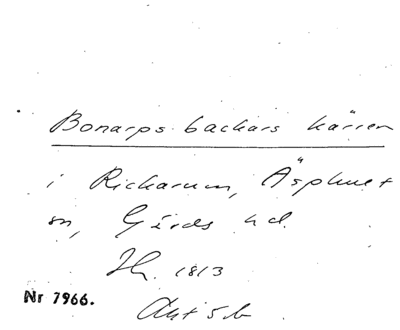 Bonarps backars kärren
i Rickarum, Äsphult
sn, Gärds hd.
1813
Nr 7966.
Akt 5b